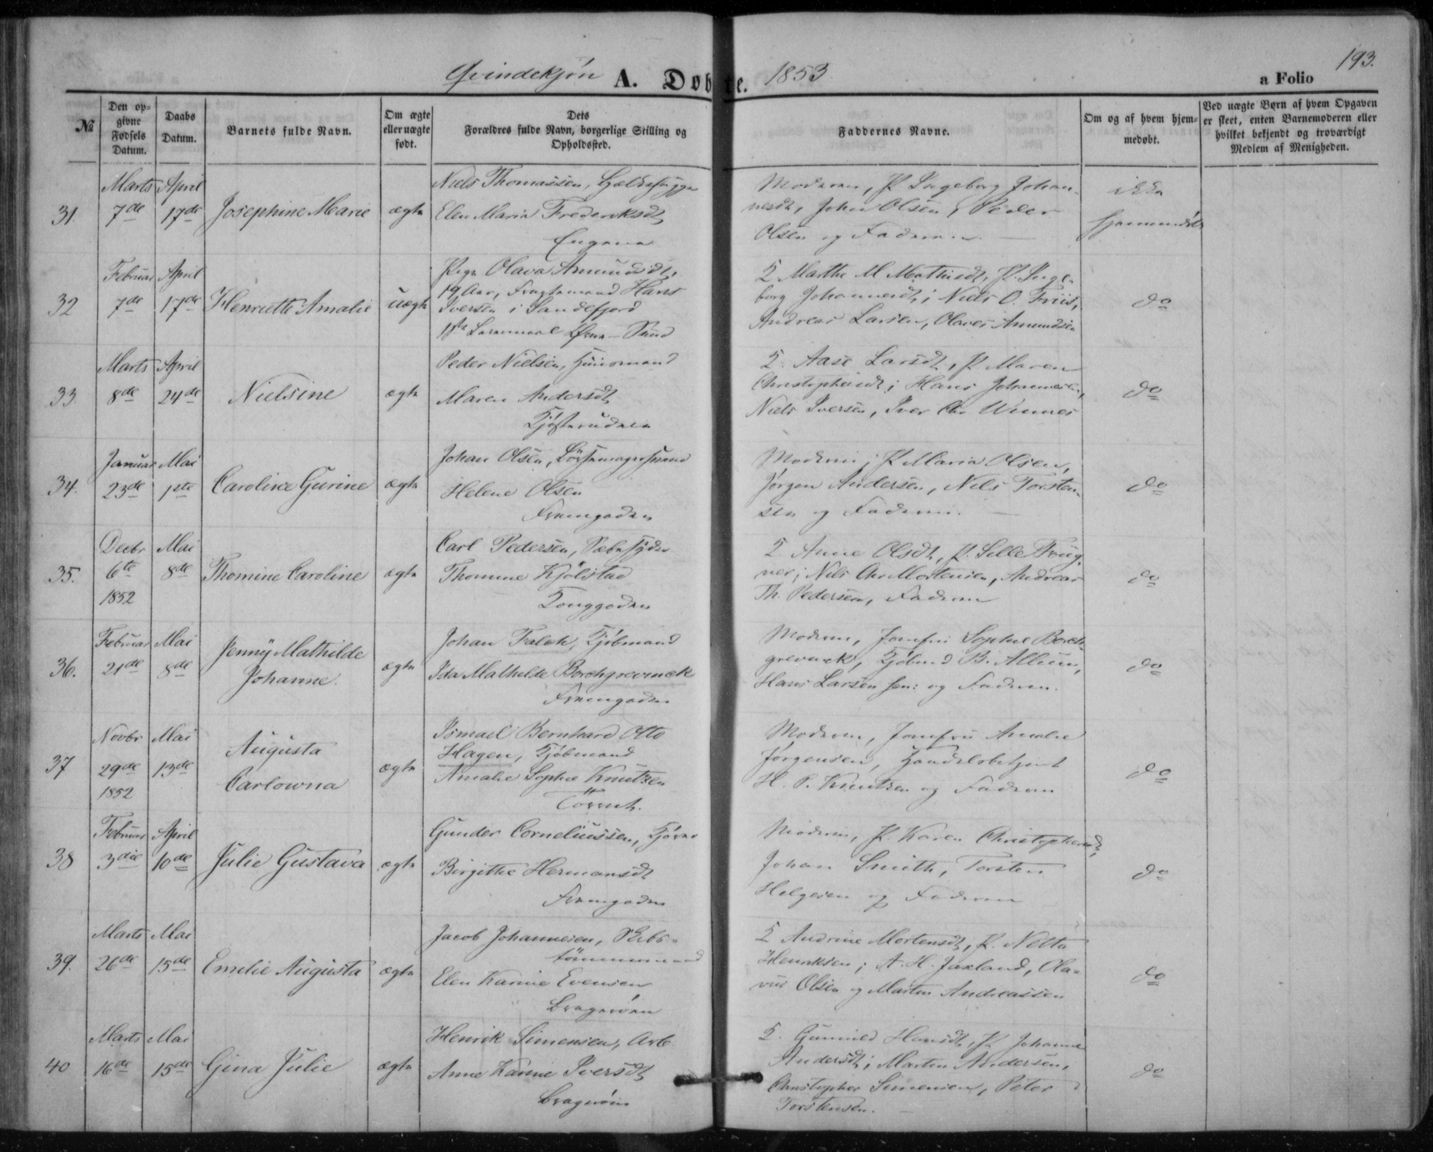 193.
Qvindekjön A. Døbte. 1853 a Folio
№
Den op-
givne
Fødsels
Datum.
Daabs
Datum.
Barnets fulde Navn.
Om ægte
eller uægte
født.
Dets
Forældres fulde Navn, borgerlige Stilling og
Opholdssted.
Faddernes Navne.
Om og af hvem hjem-
medøbt.
Ved uægte Børn af hvem Opgaven
er skeet, enten Barnemoderen eller
hvilket bekjendt og troværdigt
Medlem af Menigheden.
31
Marts
7de
April
17de
Josephine Marie
ægte
Niels Thomassen,
Elen Maria Frederiksdt
Engene
Moderen, P. Ingeborg Johan-
nesdt, John Olsen, Peder
Olsen og Faderen
ikke
hjemmedöbt
32
Februar
7de
April
17de
Henriette Amalie
uægte
Pige Olava Amundsdt,
19 Aar, Hans
Iversen i Sandefjord
K. Marthe M. Mathisdt, P. Inge-
borg Johannesdt; Niels O. Friis,
Andreas Larsen, Olaves Amundsen
do
33
Marts
8de
April
24de
Nielsine
ægte
Peder Nielsen, Huusmand
Maren Andersdt
K. Aase Larsdt, P. Maren
Christophersdt; Hans Johannesen,
Niels Iversen, Iver Chr
do
34.
Januar
23de
Mai
1ste
Caroline Gurine
ægte
Johan Olsen,
Helene Olsen
Strømgaden
Moderen, P. Maria Olsen,
Jörgen Andersen, Nils Torsten-
sen og Faderen.
do
35.
Decbr
6te
1852
Mai
8de
Thomine Caroline
ægte
Carl Pedersen, Sæbesyder
Thomine Kjölstad
Tonggaden
K. Anne Olsdt, P.
Nils Chr Mortensen, Andreas
Th. Pedersen, Faderen
do
36.
Februar
21de
Mai
8de
Jenny Mathilde
Johanne.
ægte
Johan Falck, Kjöbmand
Ida Mathilde Borchgrevinck
Strømgaden
Moderen, Jomfru Sophie Borch-
grevinck, Kjöbmd B.
Hans Larsen sen: og Faderen.
do
37
Novbr
29de
1852
Mai
13de
Augusta
Carlowna
ægte
Ismael Bernhard Otto
Hagen, Kjöbmand
Amalie Sophie Knutzen
Torvet.
Moderen, Jomfru Amalie
Jörgensen, Handelsbetjent
H. P. Knutzen og Faderen
do
38
Februar
3die
April
10de
Julie Gustava
ægte
Gunder Corneliussen,
Birgithe Hermansdt
Strømgaden
Moderen, P. Karen Christophersdt,
Johan Smith, Torsten
Helgesen og Faderen
do
39.
Marts
26de
Mai
15de
Emelie Augusta
ægte
Jacob Johannesen, Skibs-
tömmermand
Elen Karine Evensen
Bragerøen
K. Andrine Mortensdt, P. Netta
Henriksen; A. H. Jaxland, Ola-
vus Olsen og Morten Andreassen
do
40
Marts
16de
Mai
15de
Gina Julie
ægte
Henrik Simensen, Arb.
Anne Karine Iversdt
Bragerøen
K. Gunnild Hansdt, P. Johanne
Andersdt; Morten Andersen,
Christopher Simensen, Peter
Torstensen.
do